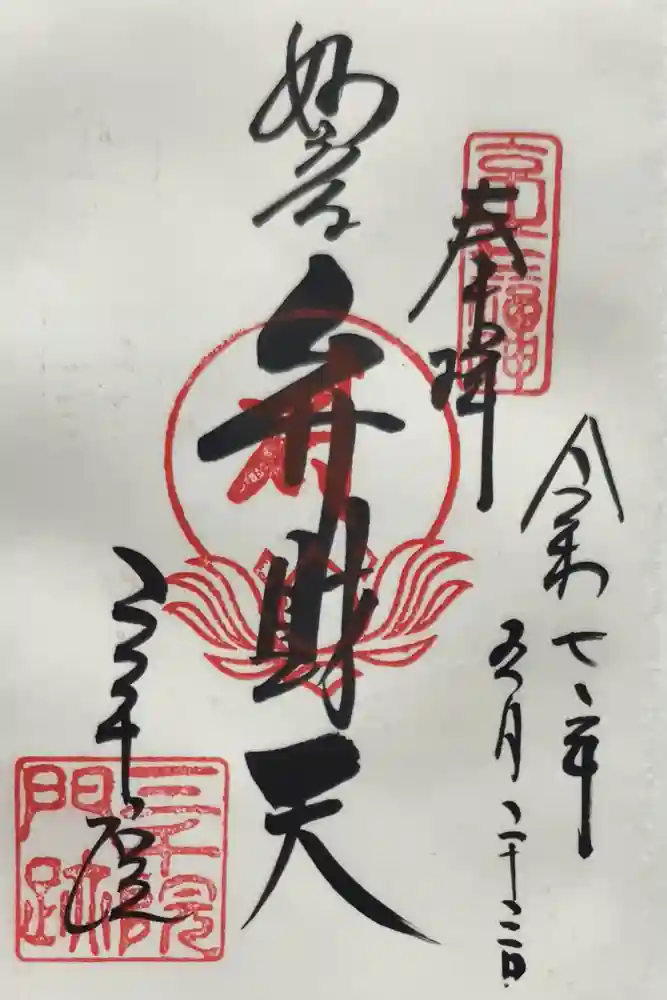 令和七年
五月二十二日
奉拝
妙音
弁財天
三千院
三千院
門跡